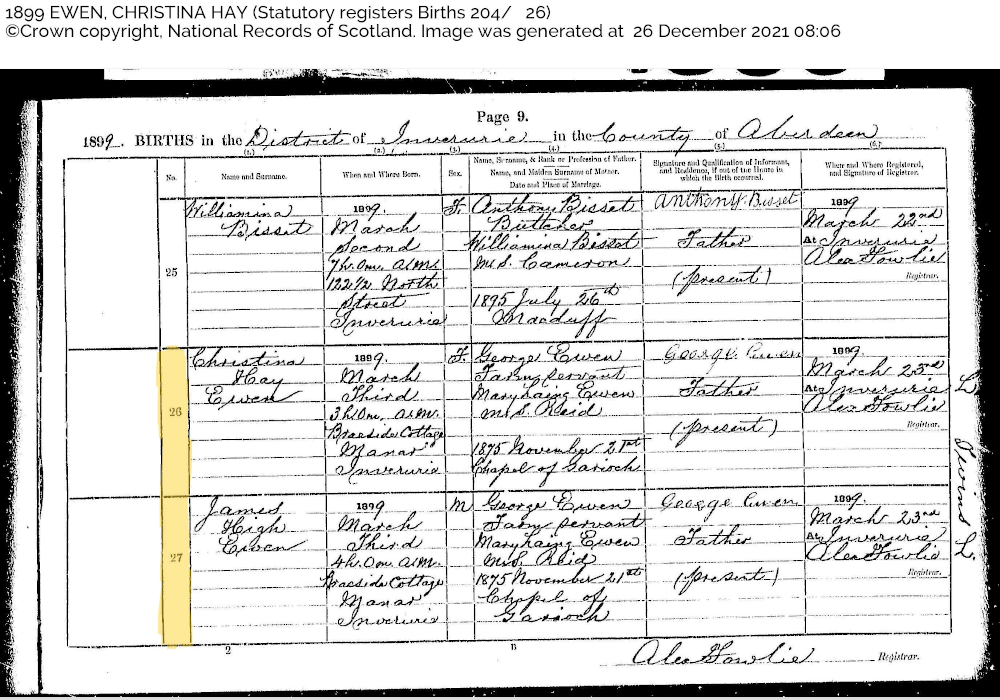 1899 EWEN, CHRISTINA HAY (Statutory registers Births 204/ 26)
©Crown copyright, National Records of Scotland. Image was generated at 26 December 2021 08:06
Page 9.
1899. BIRTHS in the District of Inverurie in the County of Aberdeen
(1.) (2.) (3.) (4.) (5.) (6.)
No.
Name and Surname.
When and Where Born.
Sex.
Name, Surname, & Rank or Profession of Father.
Name, and Maiden Surname of Mother.
Date and Place of Marriage.
Signature and Qualification of Informant,
and Residence, if out of the House in
which the Birth occurred.
When and Where Registered,
and Signature of Registrar.
25
Williamina
Bisset
1899.
March
Second
7h. 0m. A.M.
122½ North
Street
Inverurie
F.
Anthony Bisset
Butcher
Williamina Bisset
M.S. Cameron
1895 July 26th
Macduff
Anthony Bisset
Father
(present)
1899
March 22nd
At Inverurie
Alex Fowlie
Registrar.
26
Christina
Hay
Ewen
1899.
March
Third
3h. 10m. A.M.
Braeside Cottage
Manar
Inverurie
F.
George Ewen
Farm servant
Mary Laing Ewen
M.S. Reid
1875 November 21st
Chapel of Garioch
George Ewen
Father
(present)
1899.
March 23rd
At Inverurie
Alex Fowlie
Registrar.
27
James
High
Ewen
1899
March
Third
4h. 0m. A.M.
Braeside Cottage
Manar
Inverurie
M
George Ewen
Farm servant
Mary Laing Ewen
M.S. Reid
1875 November 21st
Chapel of
Garioch
George Ewen
Father
(present)
1899.
March 23rd
At Inverurie
Alex Fowlie
Registrar.
Twins
2
B
Alex Fowlie Registrar.